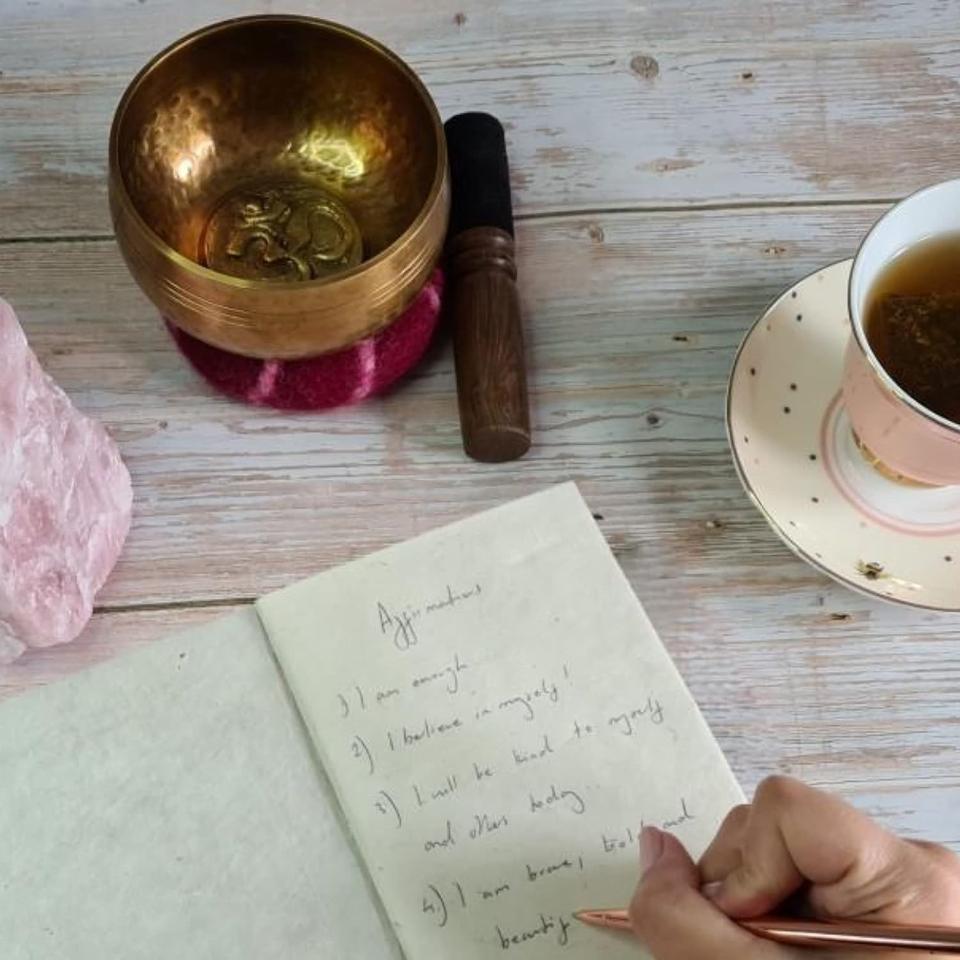 Affirmations
1) I am enough
2) I believe in myself!
3) I will be kind to myself
and others today.
4.) I am brave, bold and
beautif